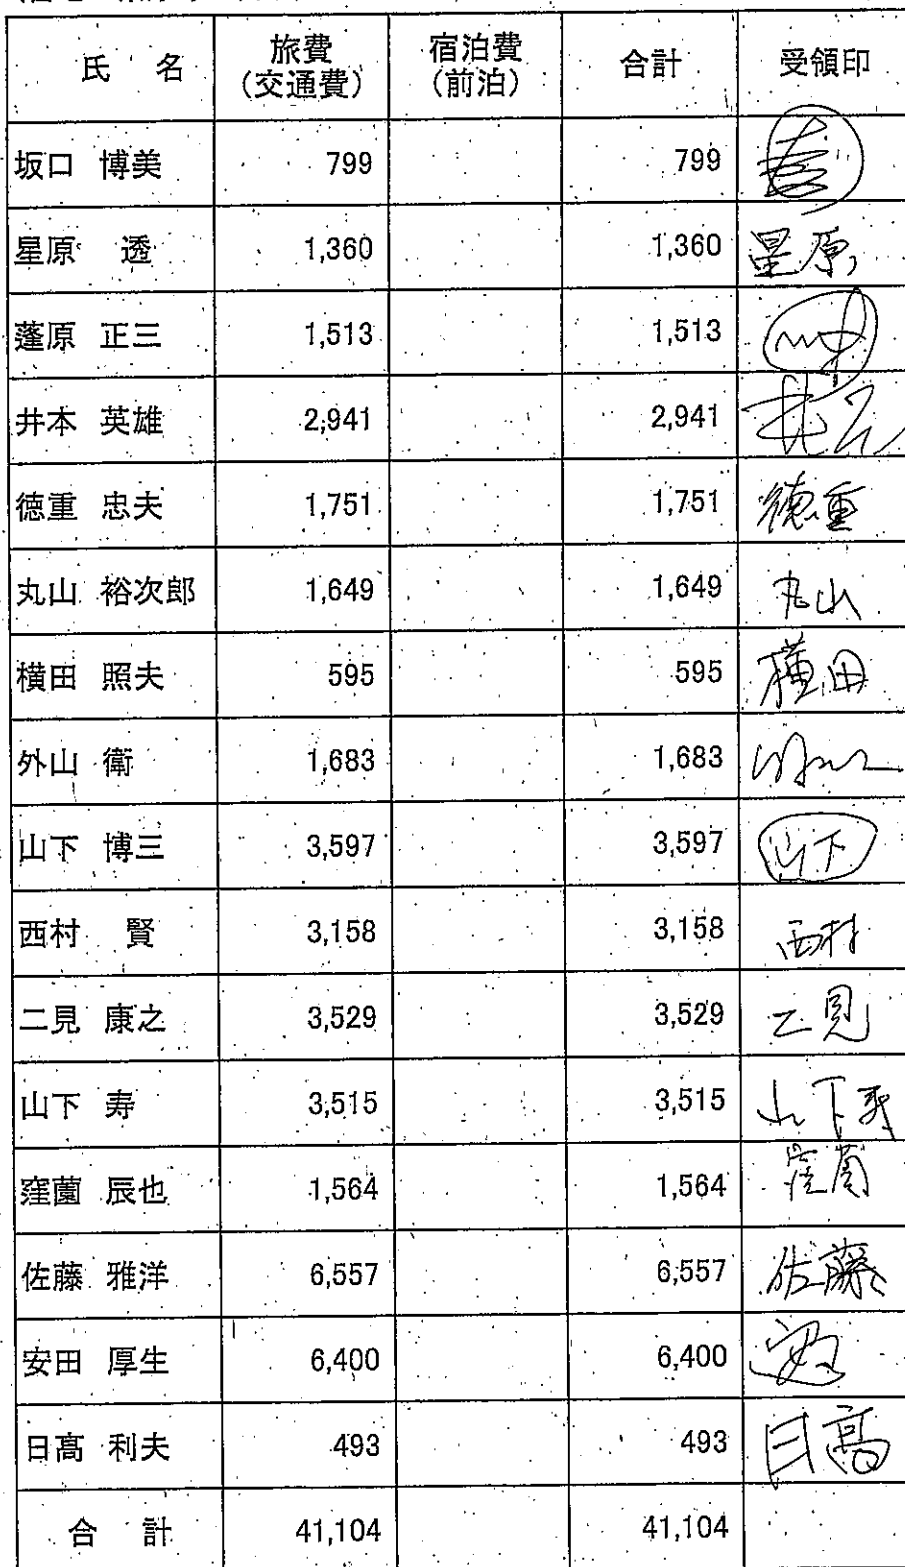 氏 名 旅費(交通費) 宿泊費(前泊) 合計 受領印
坂口 博美 799 799
星原 透 1,360 1,360 星原
蓬原 正三 1,513 1,513
井本 英雄 2,941 2,941
徳重 忠夫 1,751 1,751 徳重
丸山 裕次郎 1,649 1,649 丸山
横田 照夫 595 595 横田
外山 衛 1,683 1,683
山下 博三 3,597 3,597 山下
西村 賢 3,158 3,158 西村
二見 康之 3,529 3,529 二見
山下 寿 3,515 3,515 山下寿
窪薗 辰也 1,564 1,564 窪薗
佐藤 雅洋 6,557 6,557 佐藤
安田 厚生 6,400 6,400
日髙 利夫 493 493 日高
合 計 41,104 41,104